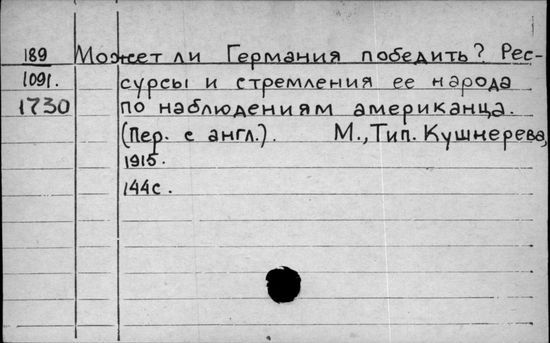 189 Может ли Германия победить? Рес-
1091. сурсы и стремления ее народа
1730 по наблюдениям американца.
(Пер. с англ.). М., Тип. Кушнерева,
1915.
144с.